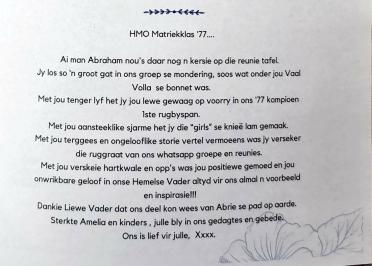 HMO Matriekklas '77....
Ai man Abraham nou's daar nog n kersie op die reunie tafel.
Jy los so 'n groot gat in ons groep se mondering, soos wat onder jou Vaal
Volla se bonnet was.
Met jou tenger lyf het jy jou lewe gewaag op voorry in ons '77 kampioen
1ste rugbyspan.
Met jou aansteeklike sjarme het jy die "girls" se knieë lam gemaak.
Met jou terggees en ongelooflike storie vertel vermoeens was jy verseker
die ruggraat van ons whatsapp groepe en reunies.
Met jou verskeie hartkwale en opp's was jou positiewe gemoed en jou
onwrikbare geloof in onse Hemelse Vader altyd vir ons almal n voorbeeld
en inspirasie!!!
Dankie Liewe Vader dat ons deel kon wees van Abrie se pad op aarde.
Sterkte Amelia en kinders , julle bly in ons gedagtes en gebede.
Ons is lief vir julle, Xxxx.